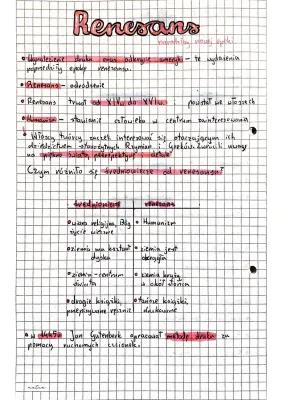 Renesans
narodziny nowej epoki.
• Wynalezienie druku oraz odkrycie ameryki – te wydarzenia
poprzedziły epokę renesansu.
• Renesans – odrodzenie
• Renesans trwał od XIVw. do XVIw. i powstał we włoszech
• Humanizm – stawianie człowieka w centrum zainteresowania
• Włoscy twórcy zaczęli interesować się otaczającym ich
dziedzictwem starożytnych Rzymian i Greków. Zwrócili uwagę
na piękno świata, perspektywę detale
Czym różniło się średniowiecze od renesansu?
średniowiecze renesans
• wiara religijna, Bóg • Humanizm
życie wieczne
• ziemia ma kształt • ziemia jest
dyska okrągła
• ziemia – centrum • ziemia krąży
świata w okół słońca
• drogie książki, • tańsze książki
przepisywane ręcznie drukowane
• w 1445r Jan Gutenberg opracował metodę druku za
pomocą ruchomych czcionek.